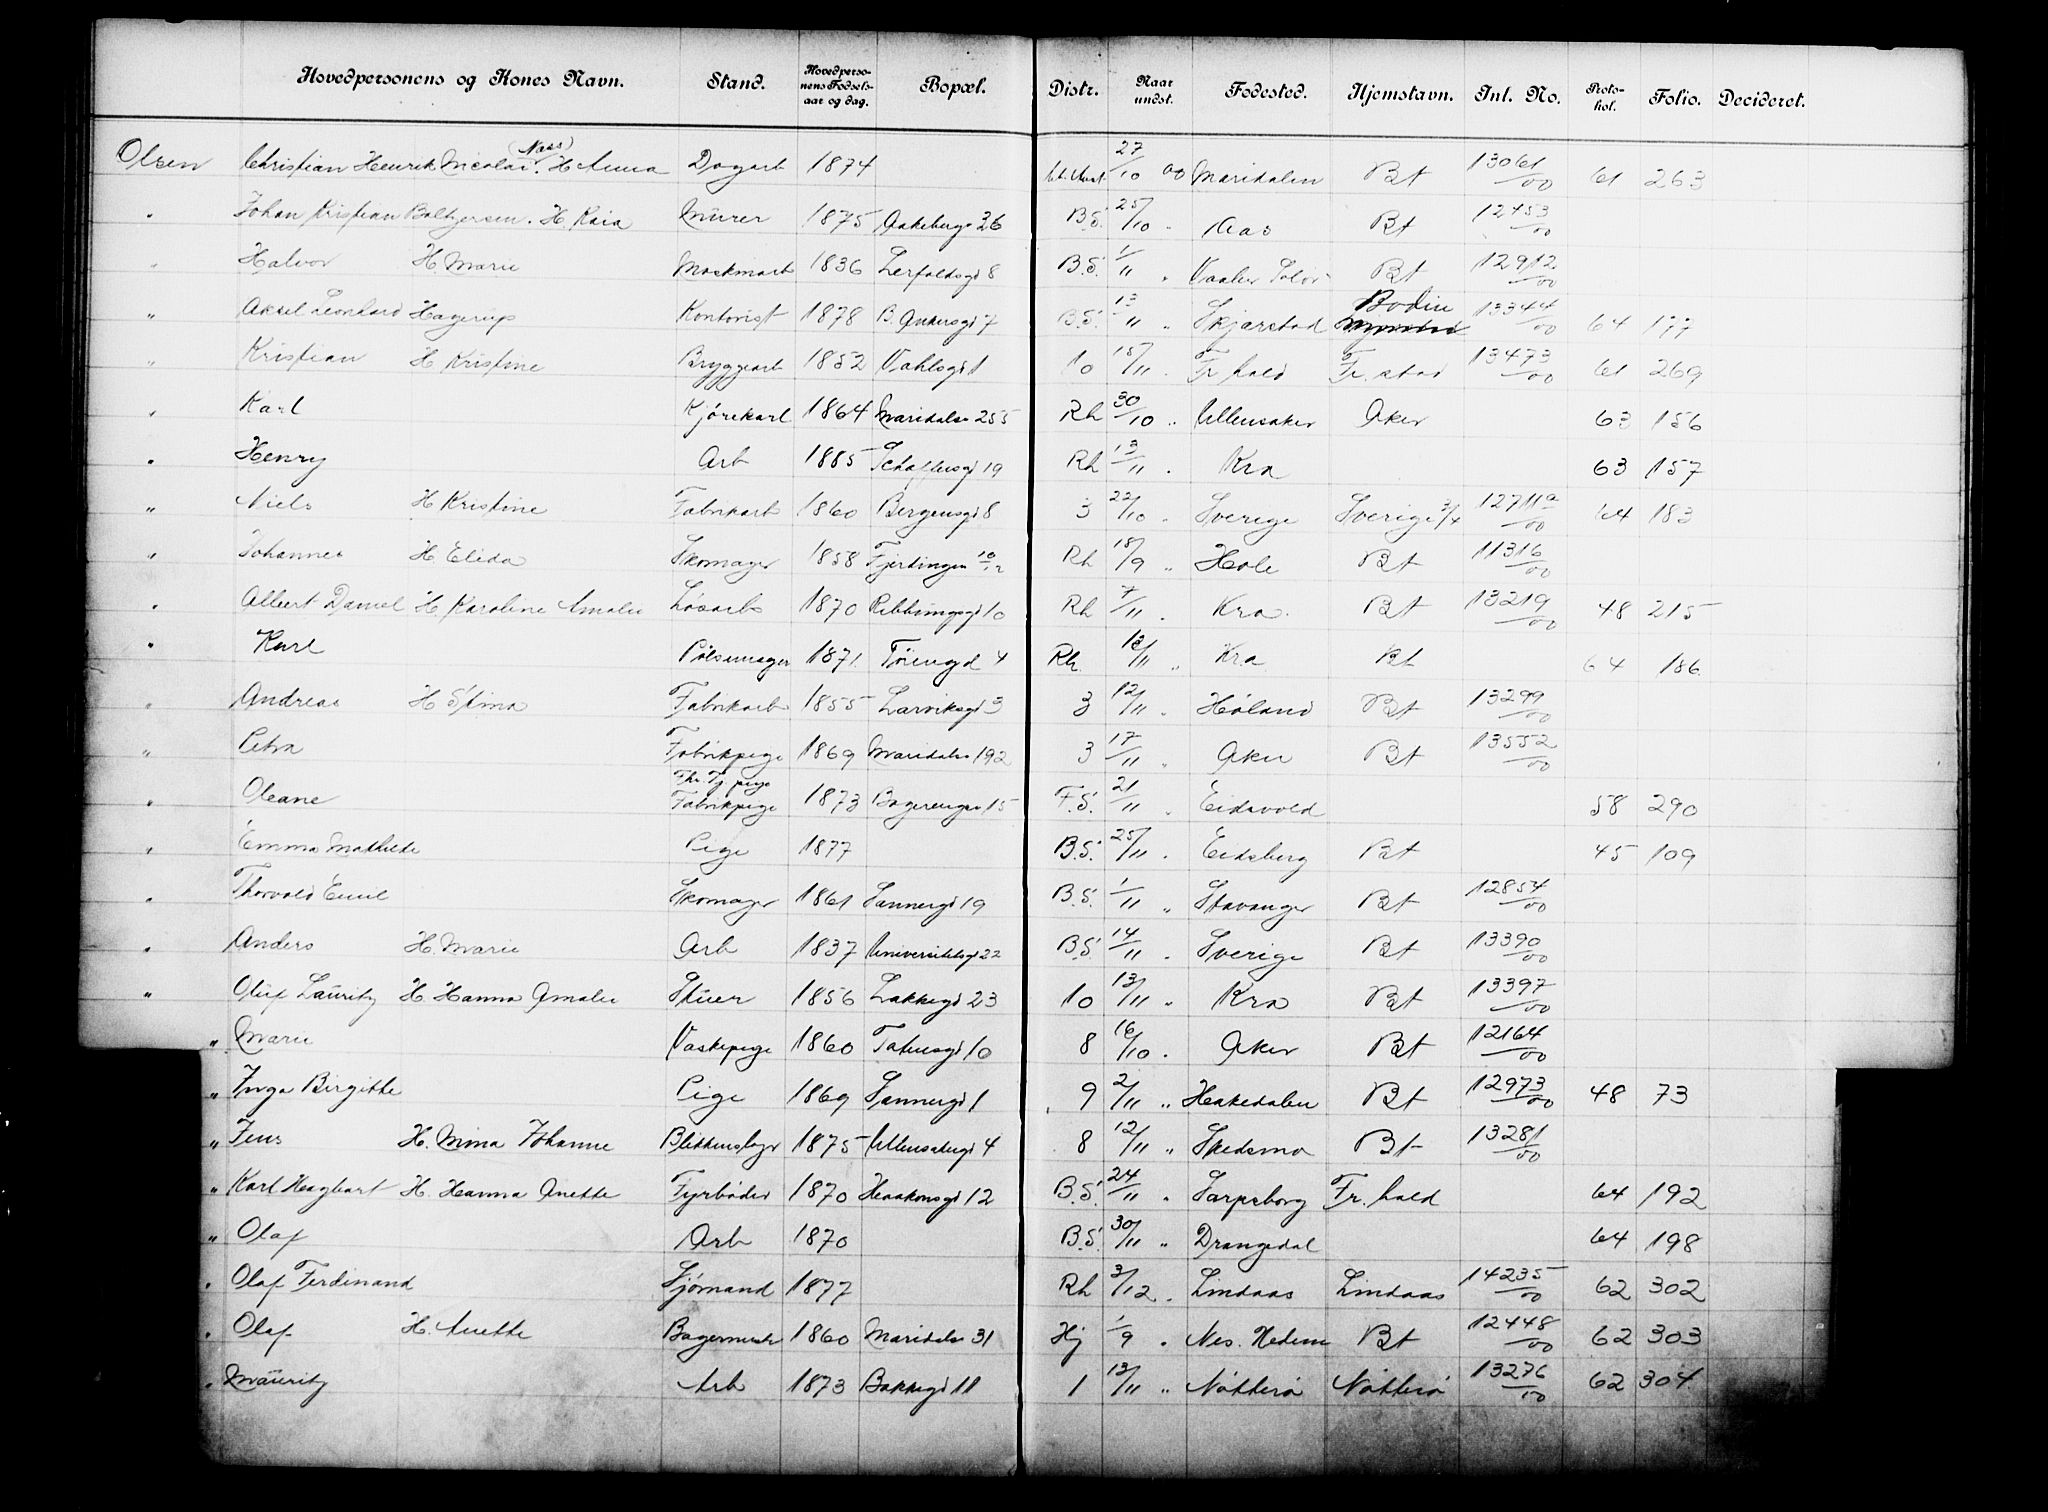 Hovedpersonens og Kones Navn. Stand. Hovedpersonens Fødselsaar og dag. Bopæl. Distr. Naar undst. Fødested. Hjemstavn. Inl. No. Protokol. Folio. Decideret.
Olsen Christian Henrik Nicolai (Næss) H Anna Dagarb 1874 27/10 00 Maridalen Bt 13061/00 61 263
" Johan Kristian Baltzersen. H. Kaia Murer 1875 Aakebergv 36 B.S. 25/10 " Aas Bt 12453/00
" Halvor H Marie Maskinarb 1836 B.S. 1/11 " Vaaler Solør Bt 12912/00
" Aksel Leonhard Hagerup Kontorist 1878 B. Ankersgd 7 B.S. 13/11 " Skjærstad Bodin 13344/00 64 177
" Kristian H Kristine Bryggearb 1852 Vahlsgd 1 10 15/11 " Fr.hald Fr.stad 13473/00 61 269
" Karl Kjørekarl 1864 Maridalsv 255 Rh 30/10 " Ullensaker Aker 63 156
" Henry Arb 1885 Schaftlusgd 19 Rh 13/11 " Kra 63 157
" Niels H Kristine Fabrikarb 1860 Bergensgd 8 3 22/10 " Sverige Sverige 3/4 12711a/00 64 183
" Johannes H Elida Skomager 1858 Fjerdingen Rh 18/9 " Hole Bt 11316/00
" Albert Daniel H Karoline Amalie Løsarb 1870 Ribbungsgd 10 Rh 7/11 " Kra. Bt 13219/00 48 215
" Karl Pølsemager 1871 Tøiengd 4 Rh. 12/11 " Kra Bt 64 186
" Andreas H Stina Fabrikarb 1855 Larviksgd 3 3 12/11 " Høland Bt 13299/00
" Petra Fabrikpige 1869 Maridalsv 192 3 17/11 " Aker Bt 13552/00
" Oleane Fhv. Tj pige Fabrikpige 1873 Bogerengen 15 F.S. 21/11 " Eidsvold 58 290
" Emma Mathilde Pige 1877 B.S. 25/11 " Eidsberg Bt 45 109
" Thorvald Emil Skomager 1861 Sannergd 19 B.S. 1/11 " Stavanger Bt 12854/00
" Anders H. Marie Arb 1837 Universitetsgd 22 B.S. 14/11 " Sverige Bt 13390/00
" Oluf Lauritz H. Hanna Amalie Stuer 1856 Lakkegd 23 10 13/11 " Kra Bt 13397/00
" Marie Vaskepige 1860 Tøiensgd 10 8 16/10 " Aker Bt 12164/00
" Inga Birgitte Pige 1869 Sannergd 1 9 2/11 " Hakedalen Bt 12973/00 48 73
" Jens H. Mina Johanne Blikkenslager 1875 Ullensakergd 4 8 12/11 " Skedsmo Bt 13281/00
" Karl Hagbart H. Hanna Anette Fyrbøder 1870 Haakonsgd 12 B.S. 24/11 " Sarpsborg Fr. hald 64 192
" Olaf Arb 1870 B.S. 30/11 " Drangedal 64 198
" Olaf Ferdinand Sjømand 1877 Rh 3/12 " Lindaas Lindaas 14235/00 62 302
" Olaf H. Anette Bagermester 1860 Maridalsv 31 Hj 1/9 " Nes. Hedem Bt 12448/00 62 303
" Mauritz Arb 1873 Bakkegd 11 1 12/11 " Nøtterø Nøtterø 13276/00 62 304